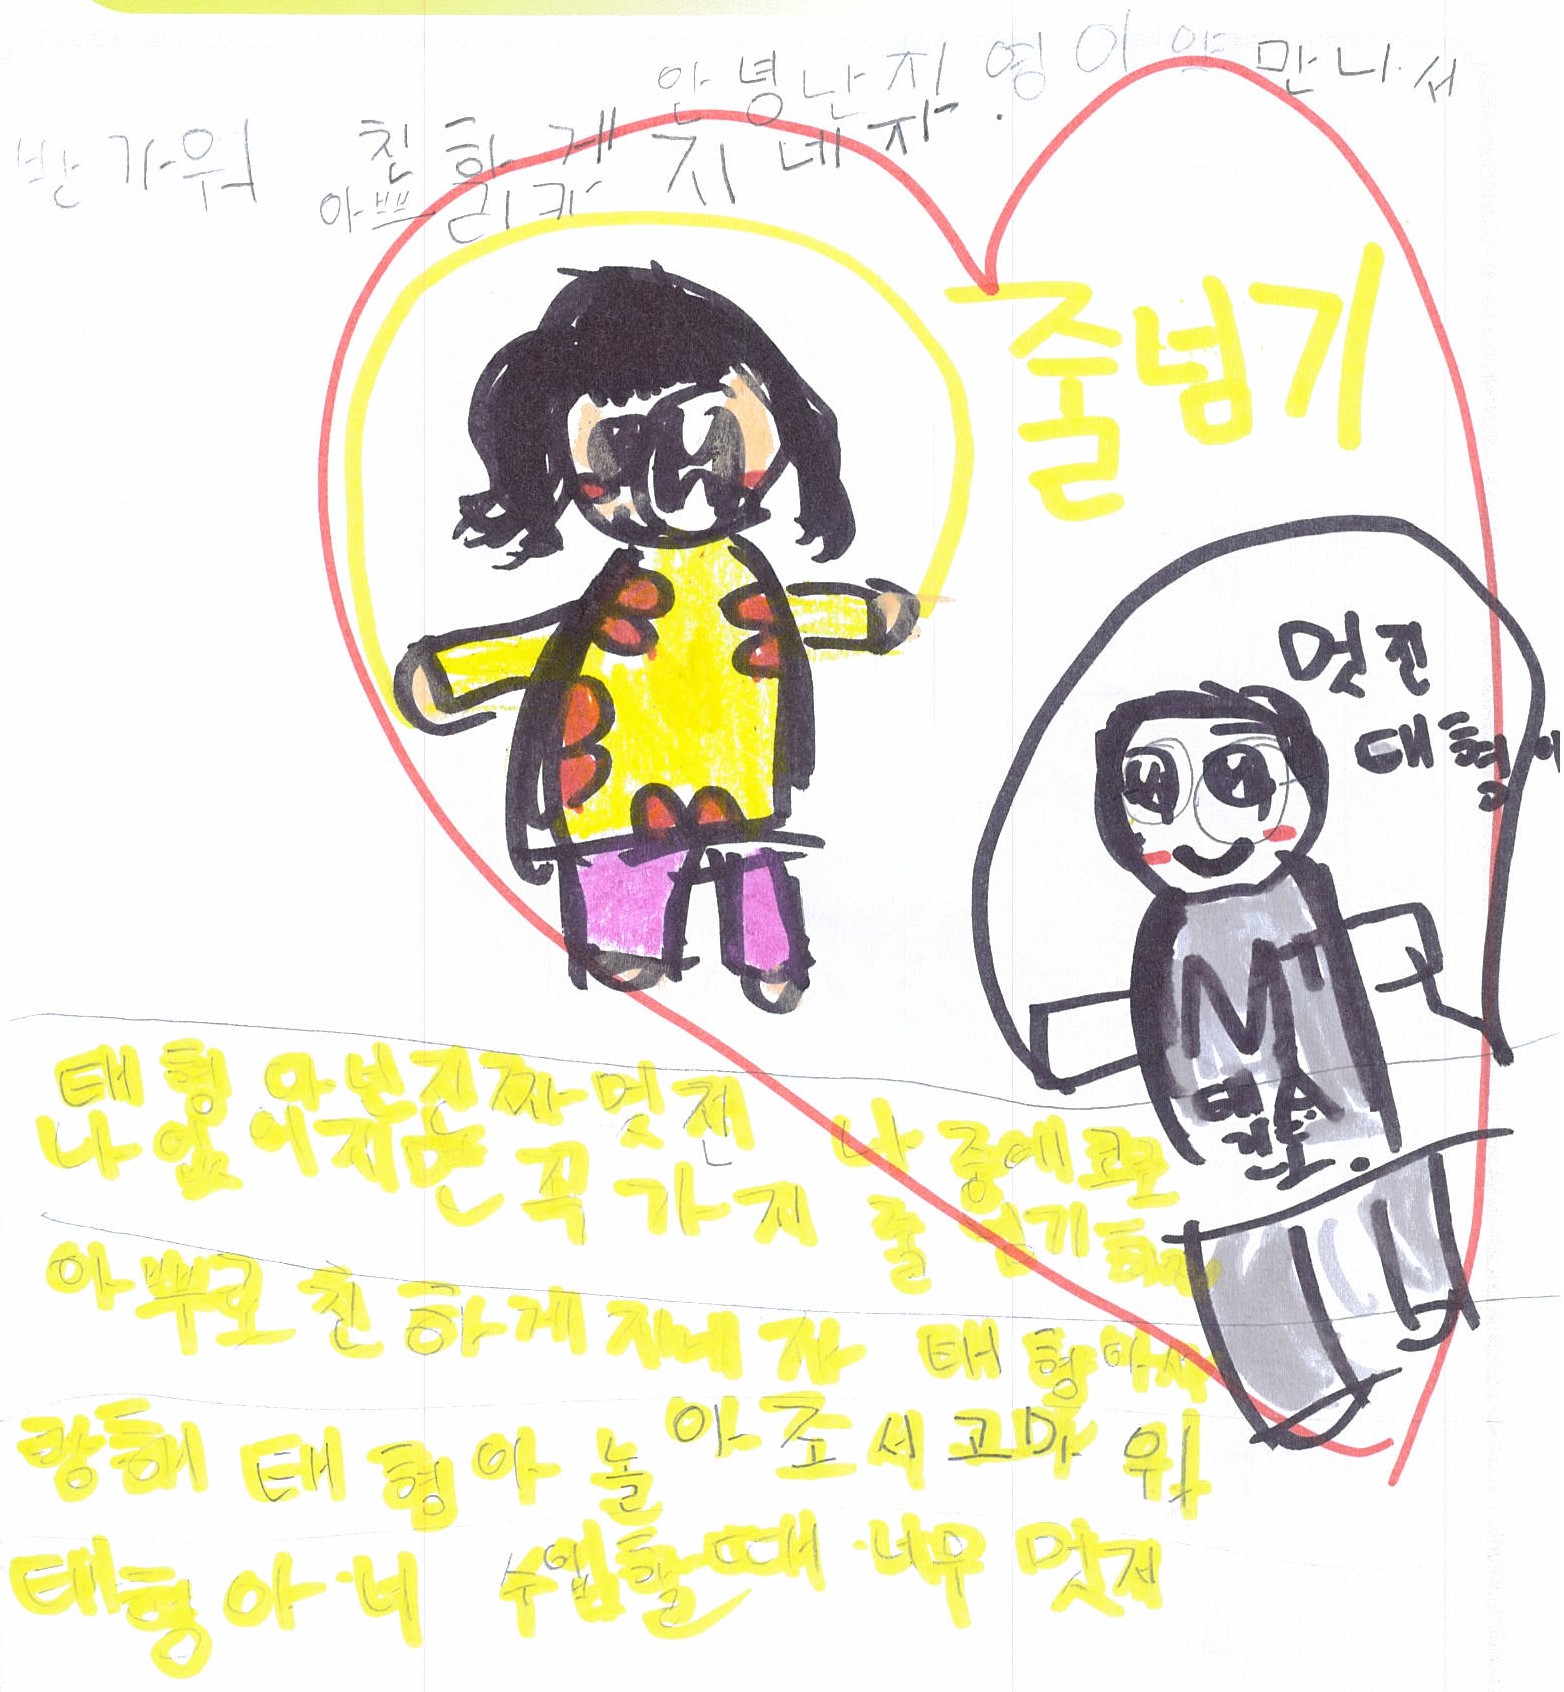 안녕난지영이야만나서
반가워 친하게지네자
아쁘리카
줄넘기
멋진
태형아
M
태
태형아넌진짜멋젼 나중에코로
나없어지면꼭가치 줄넘기하자
아뿌로친하게지네자 태형아사
랑해 태형아놀아조서고마워
태형아·너 수업할때·너무멋져